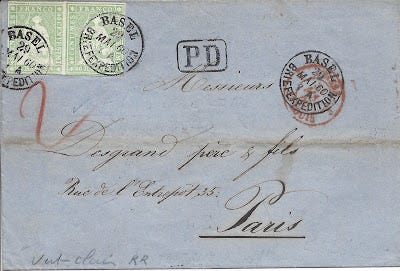 FRANCO
FRANCO
BASEL
29
MAI 60
4
BRIEFEXPEDITION
BASEL
29
MAI 60
4
BRIEFEXPEDITION
PD
BASEL
29
MAI 60
4
BRIEFEXPEDITION
Messieurs
Desgrand père & fils
Rue de l'Entrepôt 35.
Paris
Vert-clair RR